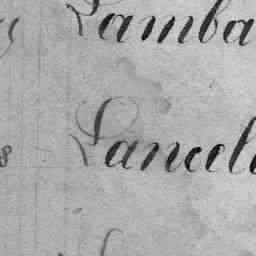 Lamba
Lancel